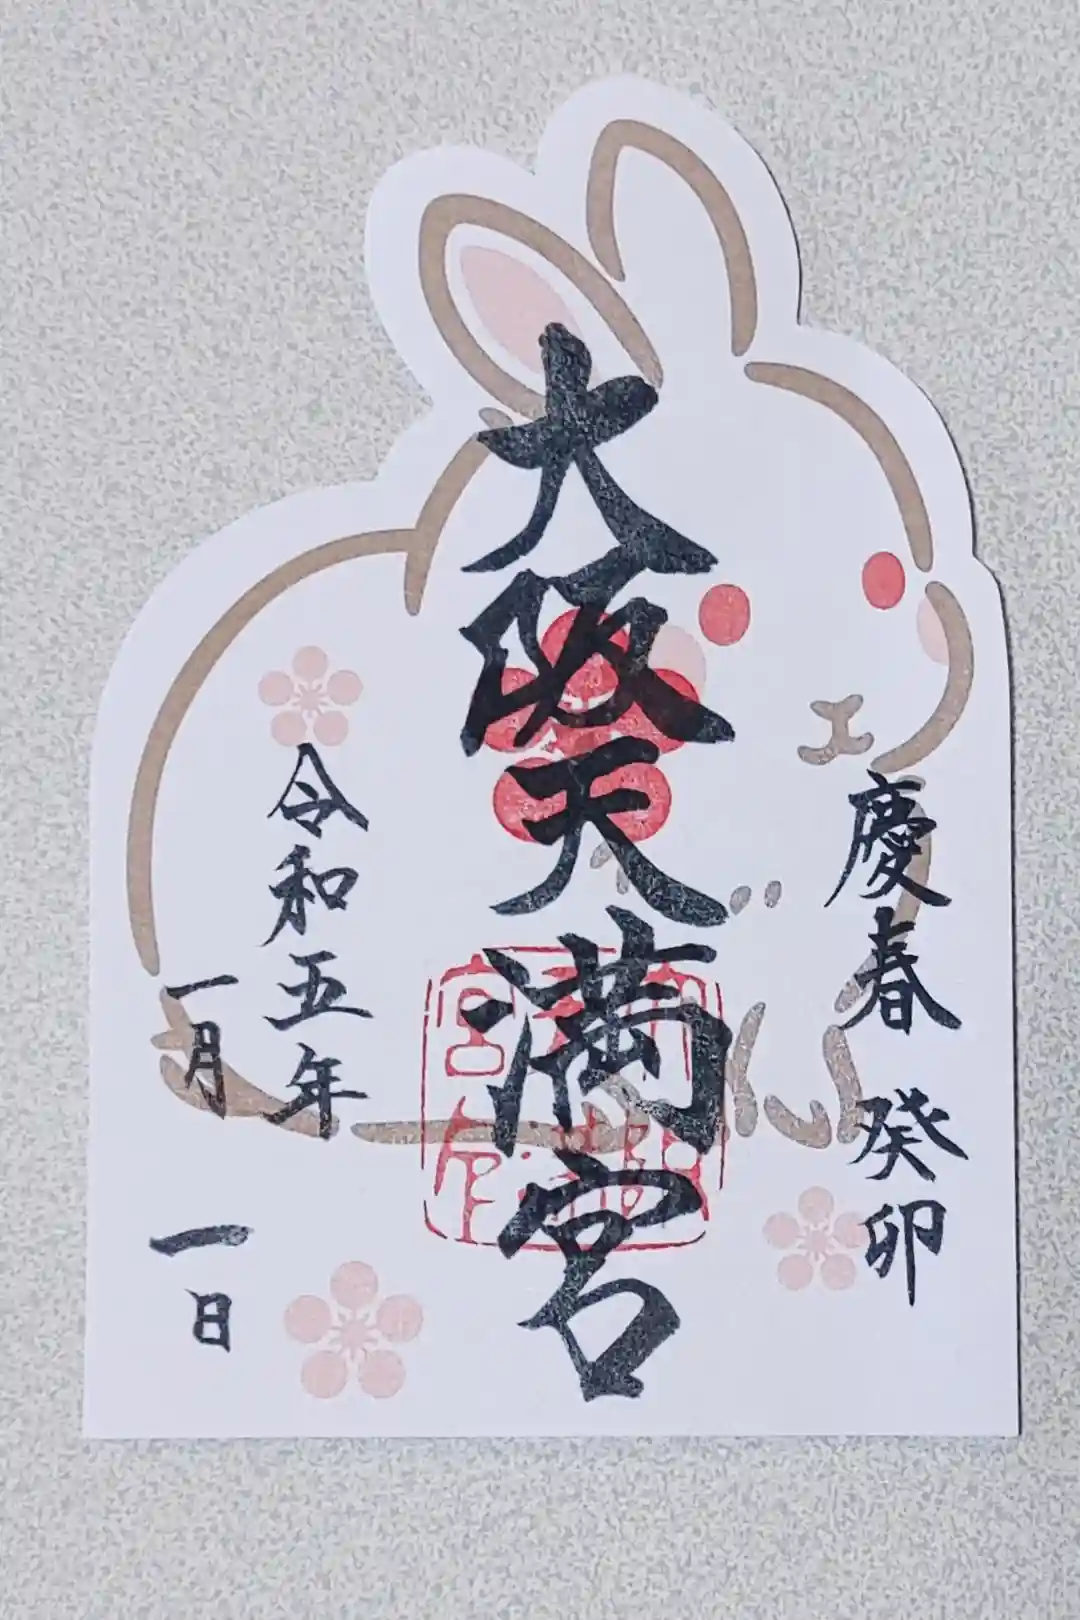 慶春 癸卯
大阪天満宮
令和五年
一月一日